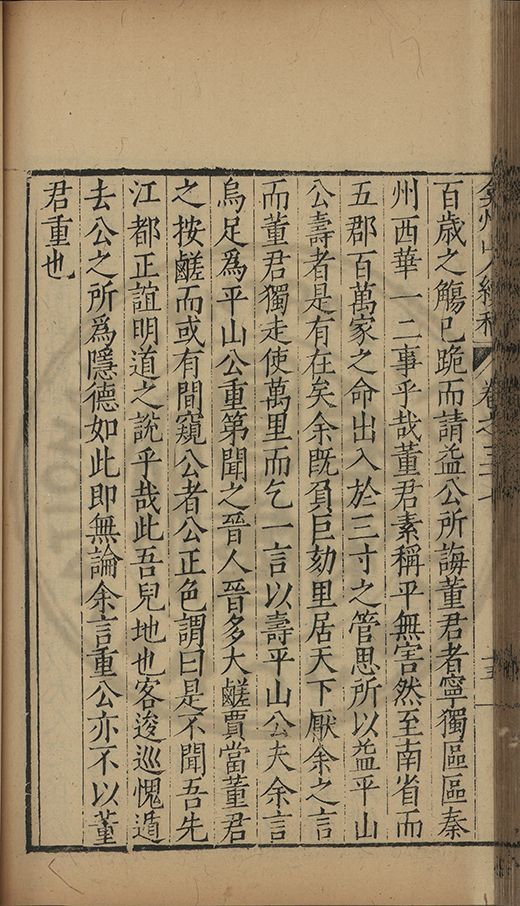 弇州山人續稿 卷之三十七 十五
百歲之觴已跪而請益公所誨董君者寧獨區區秦
州西華一二事乎哉董君素稱平無害然至南省而
五郡百萬家之命出入於三寸之管思所以益平山
公壽者是有在矣余既負巨劾里居天下厭余之言
而董君獨走使萬里而乞一言以壽平山公夫余言
烏足為平山公重第聞之晉人晉多大鹺賈當董君
之按鹺而或有間窺公者公正色謂曰是不聞吾先
江都正誼明道之說乎哉此吾兒地也客逡巡愧遁
去公之所爲隱德如此即無論余言重公亦不以董
君重也